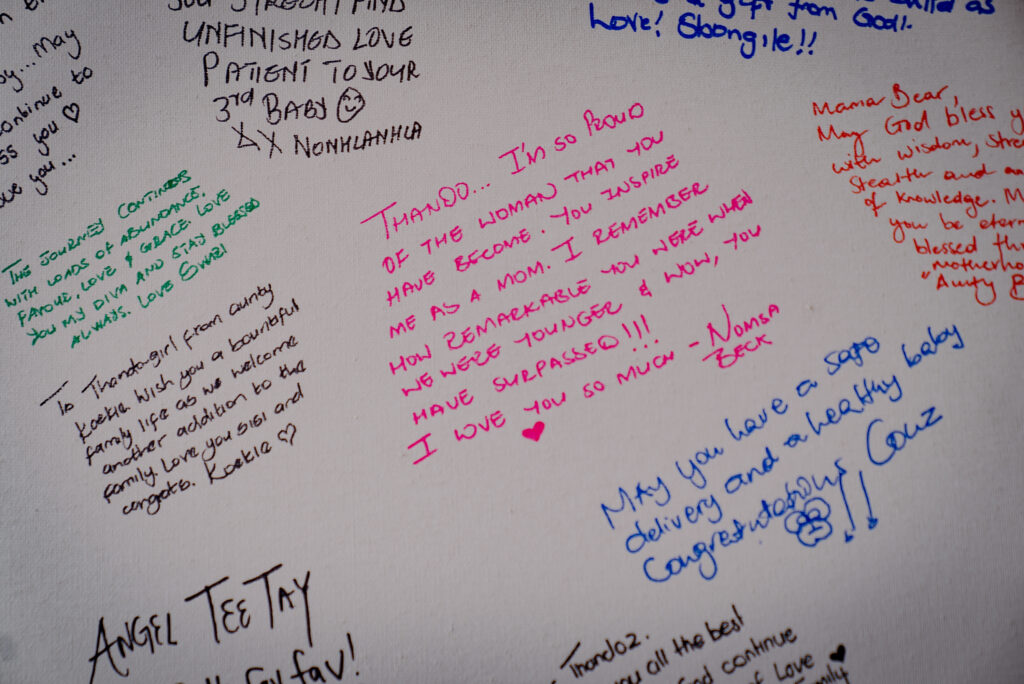 UNFINISHED LOVE
PATIENT TO YOUR
3rd BABY
XX NONHLANHLA
gift from God!
Love! Sbongile!!
May
continue to
you ♡
you...
Mama Bear,
May God bless
with wisdom,
Stealth and
of knowledge.
you be
blessed
motherhood
"Aunty
THE JOURNEY CONTINUES
WITH LOADS OF ABUNDANCE,
FAVOUR, LOVE & GRACE. LOVE
YOU MY DIVA AND STAY BLESSED
ALWAYS. LOVE SWAZI
THANDO... I'M SO PROUD
OF THE WOMAN THAT YOU
HAVE BECOME. YOU INSPIRE
ME AS A MOM. I REMEMBER
HOW REMARKABLE YOU WERE WHEN
WE WERE YOUNGER & WOW, YOU
HAVE SURPASSED!!!
I LOVE YOU SO MUCH - NOMSA
BECK
♥
To Thando-girl from aunty
Koekie wish you a bountiful
family life as we welcome
another addition to the
family. Love you sisi and
congrats. Koekie ♡
MAY you have a safe
delivery and a healthy baby
Congratulations Couz
!!
ANGEL TEE TAY
fav!
Thandoz.
you all the best
continue
of Love ♥
Family